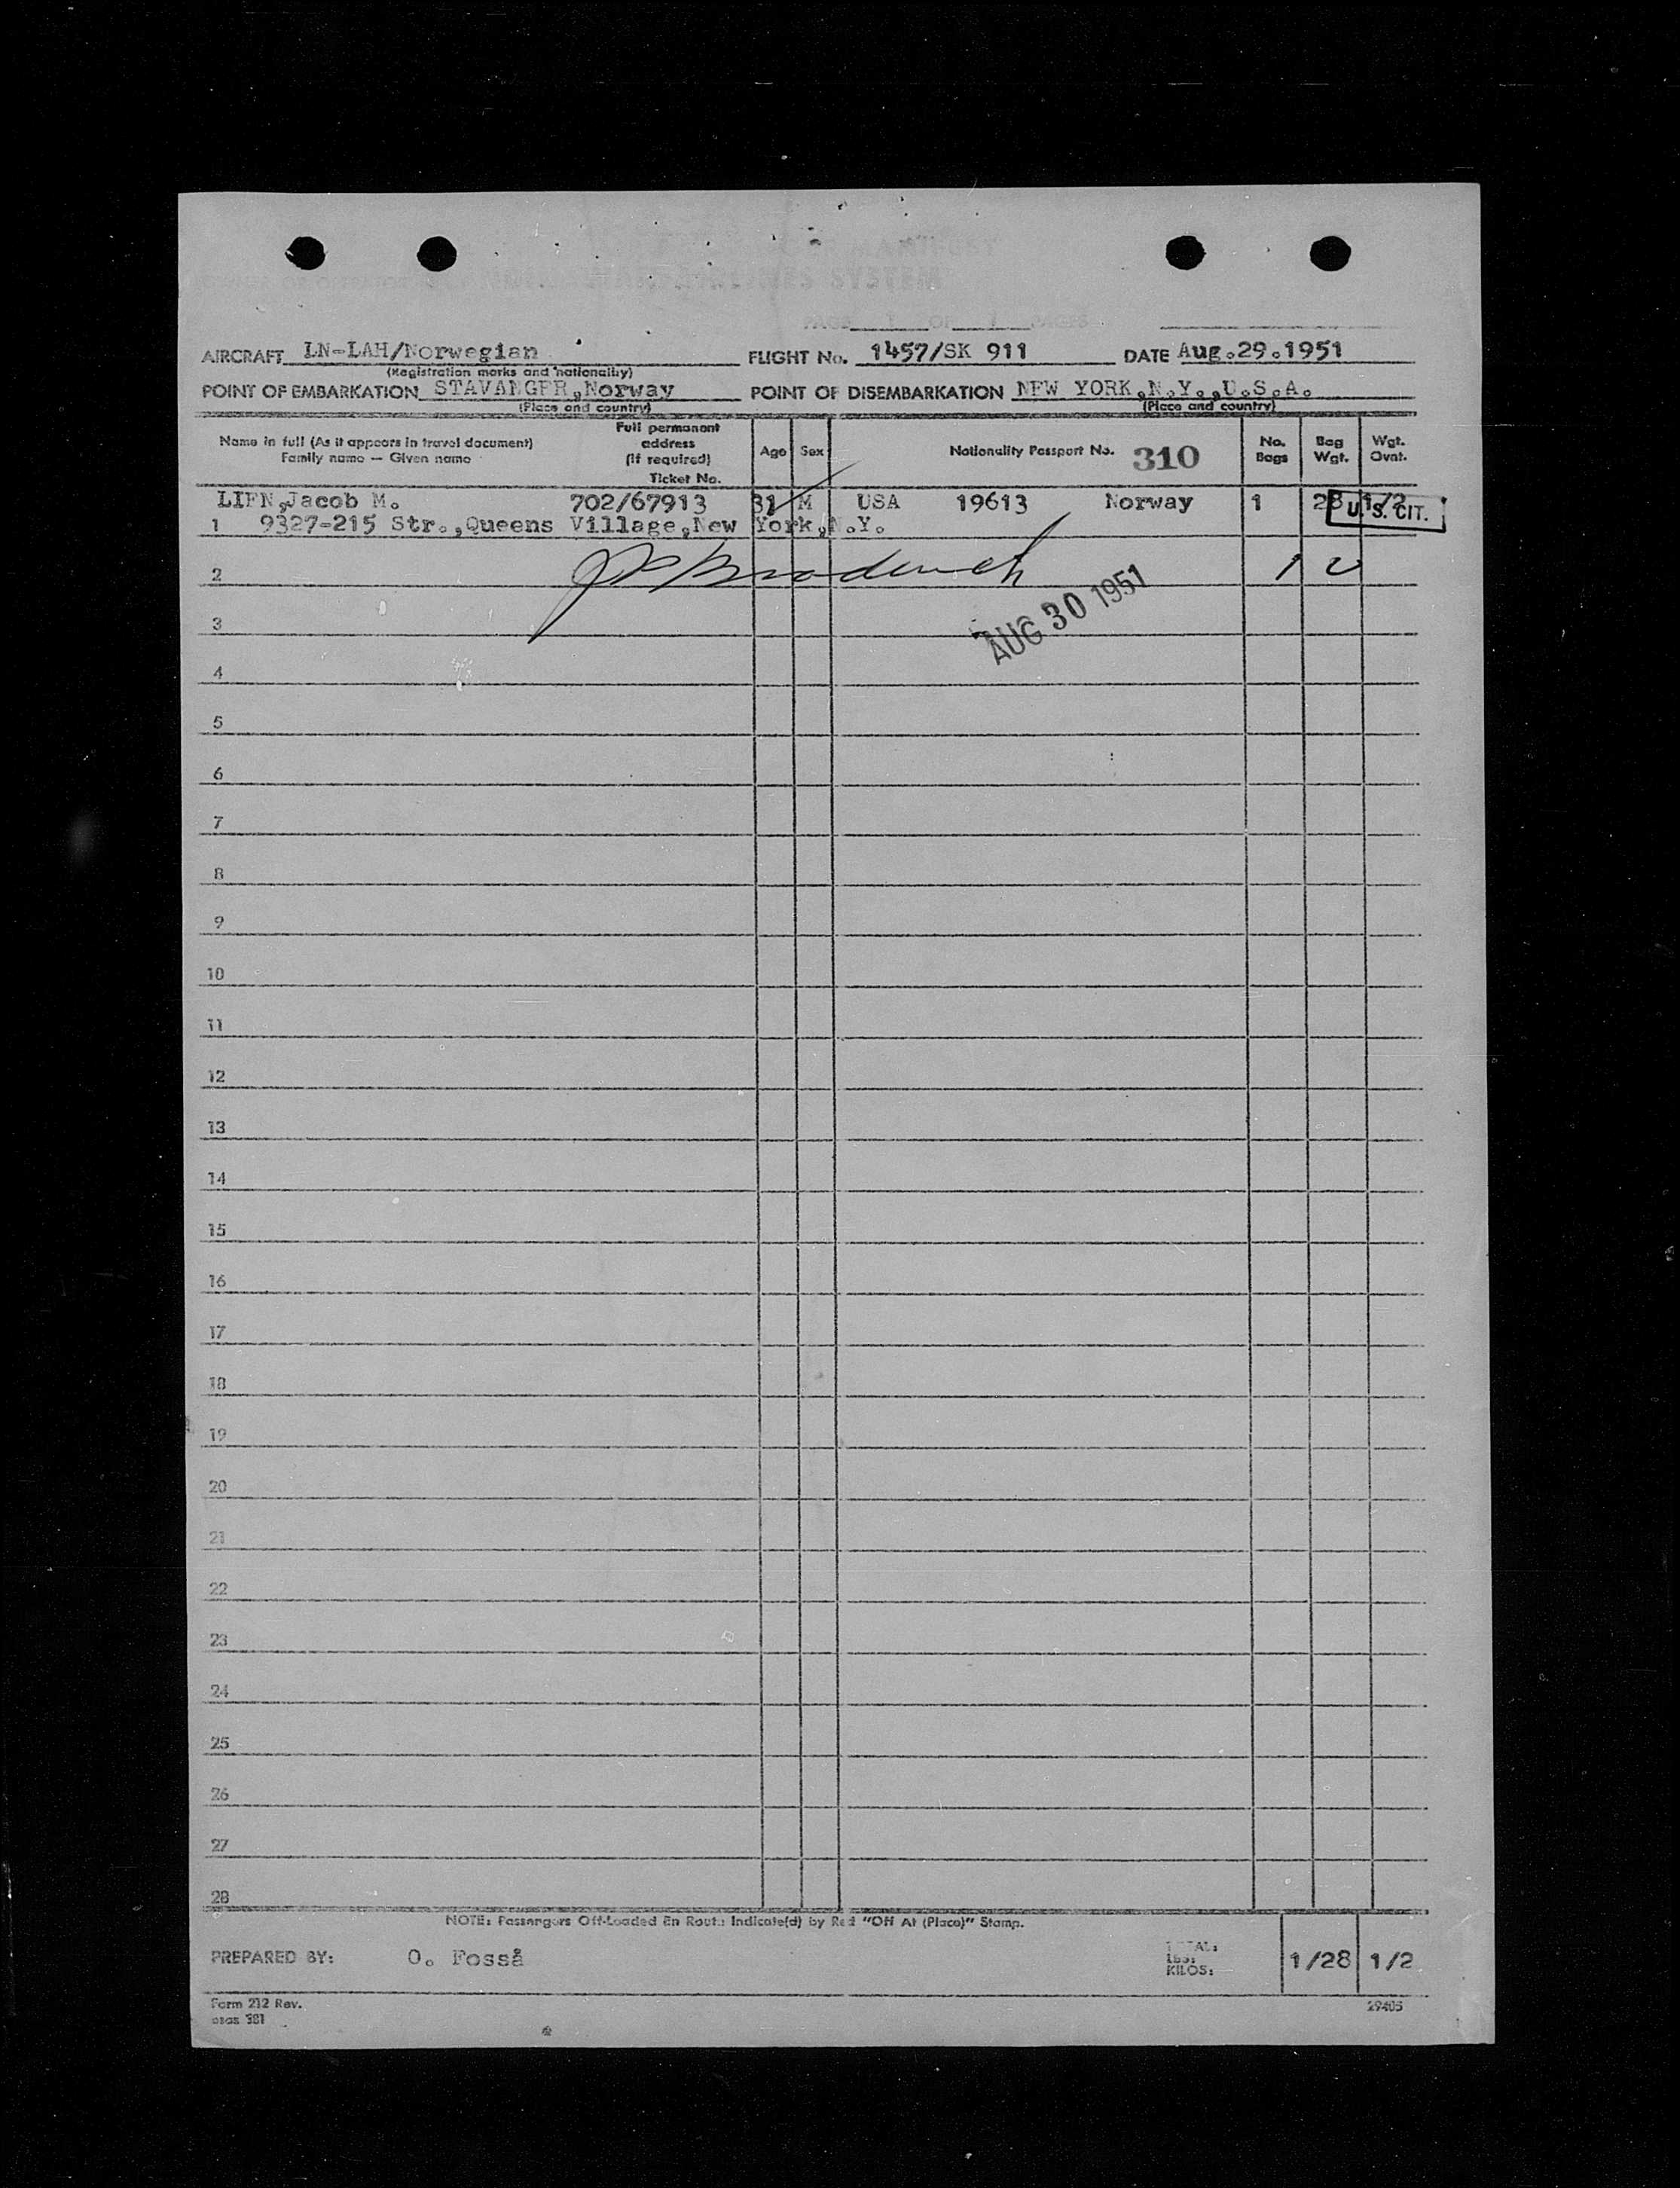 PASSENGER MANIFEST
AIRLINES SYSTEM
PAGE 1 OF 1 PAGES
AIRCRAFT LN-LAH/Norwegian FLIGHT No. 1457/SK 911 DATE Aug.29.1951
(Registration marks and nationality)
POINT OF EMBARKATION STAVANGER,Norway POINT OF DISEMBARKATION NEW YORK,N.Y.,U.S.A.
(Place and country) (Place and country)
Name in full (As it appears in travel document)
Family name — Given name
Full permanent
address
(If required)
Ticket No.
Age Sex Nationality Passport No. 310
No.
Bags
Bag
Wgt.
Wgt.
Ovnt.
LIEN,Jacob M. 702/67913 31 M USA 19613 Norway 1 28 1/2
U. S. CIT.
1 9327-215 Str.,Queens Village,New York,N.Y.
2
AUG 30 1951
3
4
5
6
7
8
9
10
11
12
13
14
15
16
17
18
19
20
21
22
23
24
25
26
27
28
NOTE: Passengers Off-Loaded En Route Indicate(d) by Red "Off At (Place)" Stamp.
PREPARED BY: O. Fosså
TOTAL:
LBS:
KILOS:
1/28 1/2
Form 212 Rev.
osas 381
29405